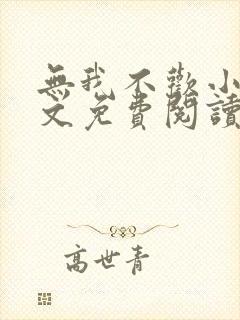 無我不歡小
文免費閱讀
高世青